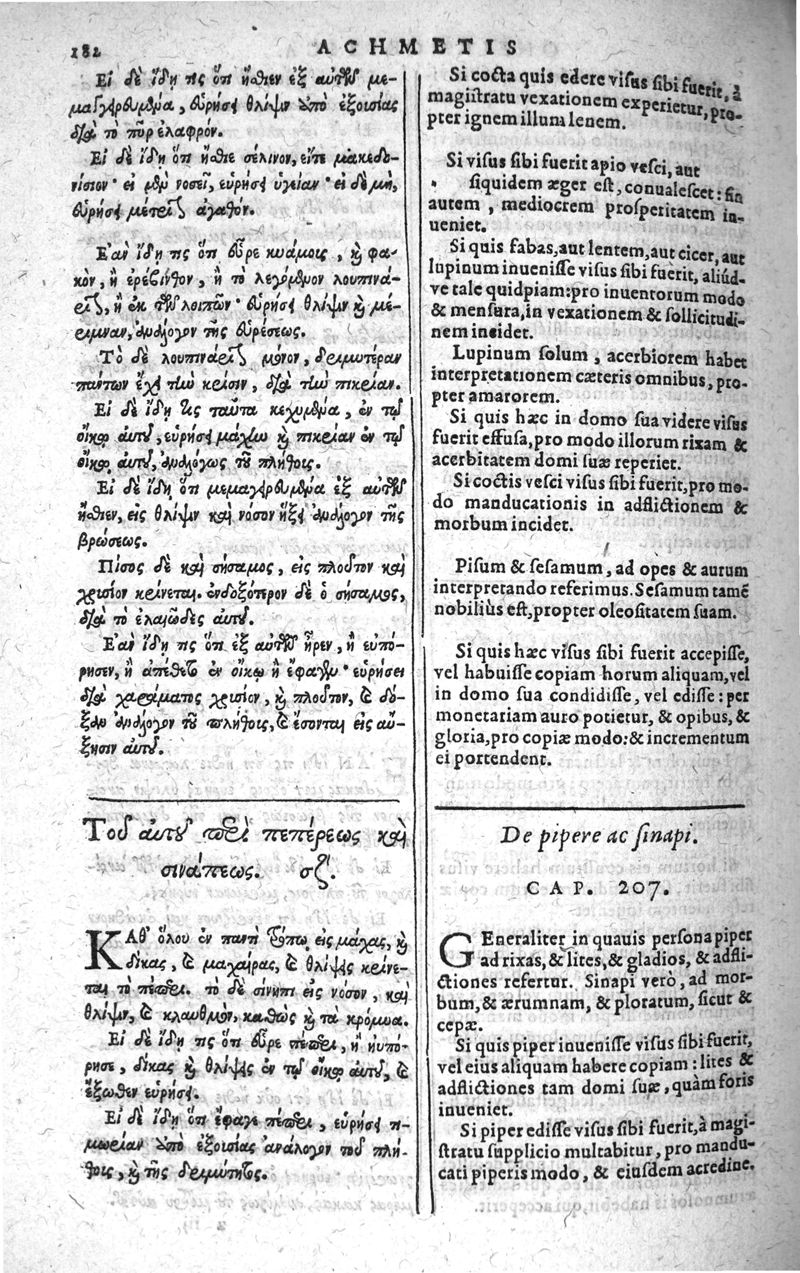 182
ACHMETIS
Εἰ δὲ ἴδῃ τις ὅτι ἤσθιεν ἐξ αὐτῶν με-
μαγειρευμένα, εὑρήσει θλίψιν ὑπὸ ἐξουσίας
διὰ τὸ πῦρ ἐλαφρόν.
Εἰ δὲ ἴδῃ ὅτι ἤσθιε σέλινον, εἴτε μακεδο-
νίσιον· εἰ μὲν νοσεῖ, εὑρήσει ὑγείαν· εἰ δὲ μὴ,
εὑρήσει μέτριον ἀγαθόν.
Ἐὰν ἴδῃ τις ὅτι εὗρε κυάμοις, καὶ φα-
κὸν, ἢ ἐρέβινθον, ἢ τὸ λεγόμενον λουπινά-
ριον, ἢ ἐκ τῶν λοιπῶν· εὑρήσει θλίψιν καὶ μέ-
ριμναν, ἀνάλογον τῆς εὑρέσεως.
Τὸ δὲ λουπινάριον μόνον, δριμυτέραν
πάντων ἔχει τὴν κρίσιν, διὰ τὴν πικρίαν.
Εἰ δὲ ἴδῃ τις ταῦτα κεχυμένα, ἐν τῷ
οἴκῳ αὐτοῦ, εὑρήσει μάχην καὶ πικρίαν ἐν τῷ
οἴκῳ αὐτοῦ, ἀναλόγως τοῦ πλήθοις.
Εἰ δὲ ἴδῃ ὅτι μεμαγειρευμένα ἐξ αὐτῶν
ἤσθιεν, εἰς θλίψιν καὶ νόσον ἥξει ἀνάλογον τῆς
βρώσεως.
Πίσος δὲ καὶ σήσαμος, εἰς πλοῦτον καὶ
χρυσίον κρίνεται. ἐνδοξότερον δὲ ὁ σήσαμος,
διὰ τὸ ἐλαιῶδες αὐτοῦ.
Ἐὰν ἴδῃ τις ὅτι ἐξ αὐτῶν ἦρεν, ἢ εὐπό-
ρησεν, ἢ ἀπέθετο ἐν οἴκῳ ἢ ἔφαγεν· εὑρήσει
διὰ χαράγματος χρυσίον, καὶ πλοῦτον, καὶ δό-
ξαν ἀνάλογον τοῦ πλήθοις, καὶ ἔσονται εἰς αὔ-
ξησιν αὐτοῦ.
Τοῦ αὐτοῦ περὶ πεπέρεως καὶ
σινάπεως. σζʹ.
ΚΑθʼ ὅλου ἐν παντὶ τρόπῳ εἰς μάχας, καὶ
δίκας, καὶ μαχαίρας, καὶ θλίψεις κρίνε-
ται τὸ πέπερι. τὸ δὲ σίνηπι εἰς νόσον, καὶ
θλίψιν, καὶ κλαυθμὸν, καθὼς καὶ τὰ κρόμυα.
Εἰ δὲ ἴδῃ τις ὅτι εὗρε πέπερι, ἢ ηὐπό-
ρησε, δίκας καὶ θλίψεις ἐν τῷ οἴκῳ αὐτοῦ, καὶ
ἔξωθεν εὑρήσει.
Εἰ δὲ ἴδῃ ὅτι ἔφαγε πέπερι, εὑρήσει τι-
μωρίαν ὑπὸ ἐξουσίας ἀνάλογον τοῦ πλή-
θοις, καὶ τῆς δριμύτητος.
Si cocta quis edere visus sibi fuerit, à
magistratu vexationem experietur, pro-
pter ignem illum lenem.
Si visus sibi fuerit apio vesci, aut
siquidem æger est, conualescet: sin
autem, mediocrem prosperitatem in-
ueniet.
Si quis fabas, aut lentem, aut cicer, aut
lupinum inuenisse visus sibi fuerit, aliúd-
ve tale quidpiam: pro inuentorum modo
& mensura, in vexationem & sollicitudi-
nem incidet.
Lupinum solum, acerbiorem habet
interpretationem cæteris omnibus, pro-
pter amarorem.
Si quis hæc in domo sua videre visus
fuerit effusa, pro modo illorum rixam &
acerbitatem domi suæ reperiet.
Si coctis vesci visus sibi fuerit, pro mo-
do manducationis in adflictionem &
morbum incidet.
Pisum & sesamum, ad opes & aurum
interpretando referimus. Sesamum tamẽ
nobilius est, propter oleositatem suam.
Si quis hæc visus sibi fuerit accepisse,
vel habuisse copiam horum aliquam, vel
in domo sua condidisse, vel edisse: per
monetariam auro potietur, & opibus, &
gloria, pro copiæ modo: & incrementum
ei portendent.
De pipere ac sinapi.
CAP. 207.
GEneraliter in quauis persona piper
ad rixas, & lites, & gladios, & adfli-
ctiones refertur. Sinapi verò, ad mor-
bum, & ærumnam, & ploratum, sicut &
cepæ.
Si quis piper inuenisse visus sibi fuerit,
vel eius aliquam habere copiam: lites &
adflictiones tam domi suæ, quàm foris
inueniet.
Si piper edisse visus sibi fuerit, à magi-
stratu supplicio multabitur, pro mandu-
cati piperis modo, & eiusdem acredine.